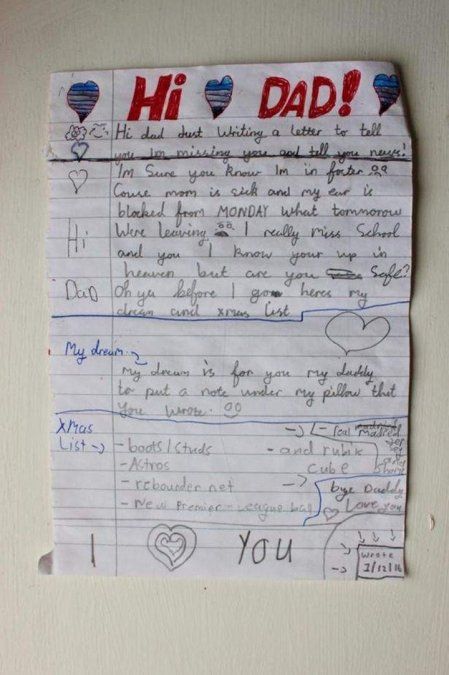 Hi DAD!
Hi dad Just writing a letter to tell
you Im missing you and tell you news!
Im Sure you know Im in foster
Couse mom is sick and my ear is
blocked from MONDAY what tommorow
Were leaving I really miss School
and you I know your up in
heaven but are you Safe?
Oh ya before I go heres my
dream and xmas List
Hi
Dad
My dream
my dream is for you my daddy
to put a note under my pillow that
you wrote.
Xmas
List
- boots/studs
- Astros
- rebounder net
- New Premier-League ball
- Real Madrid
- and rubik
cube
bye Daddy
Love you
I YOU
wrote
1/12/16